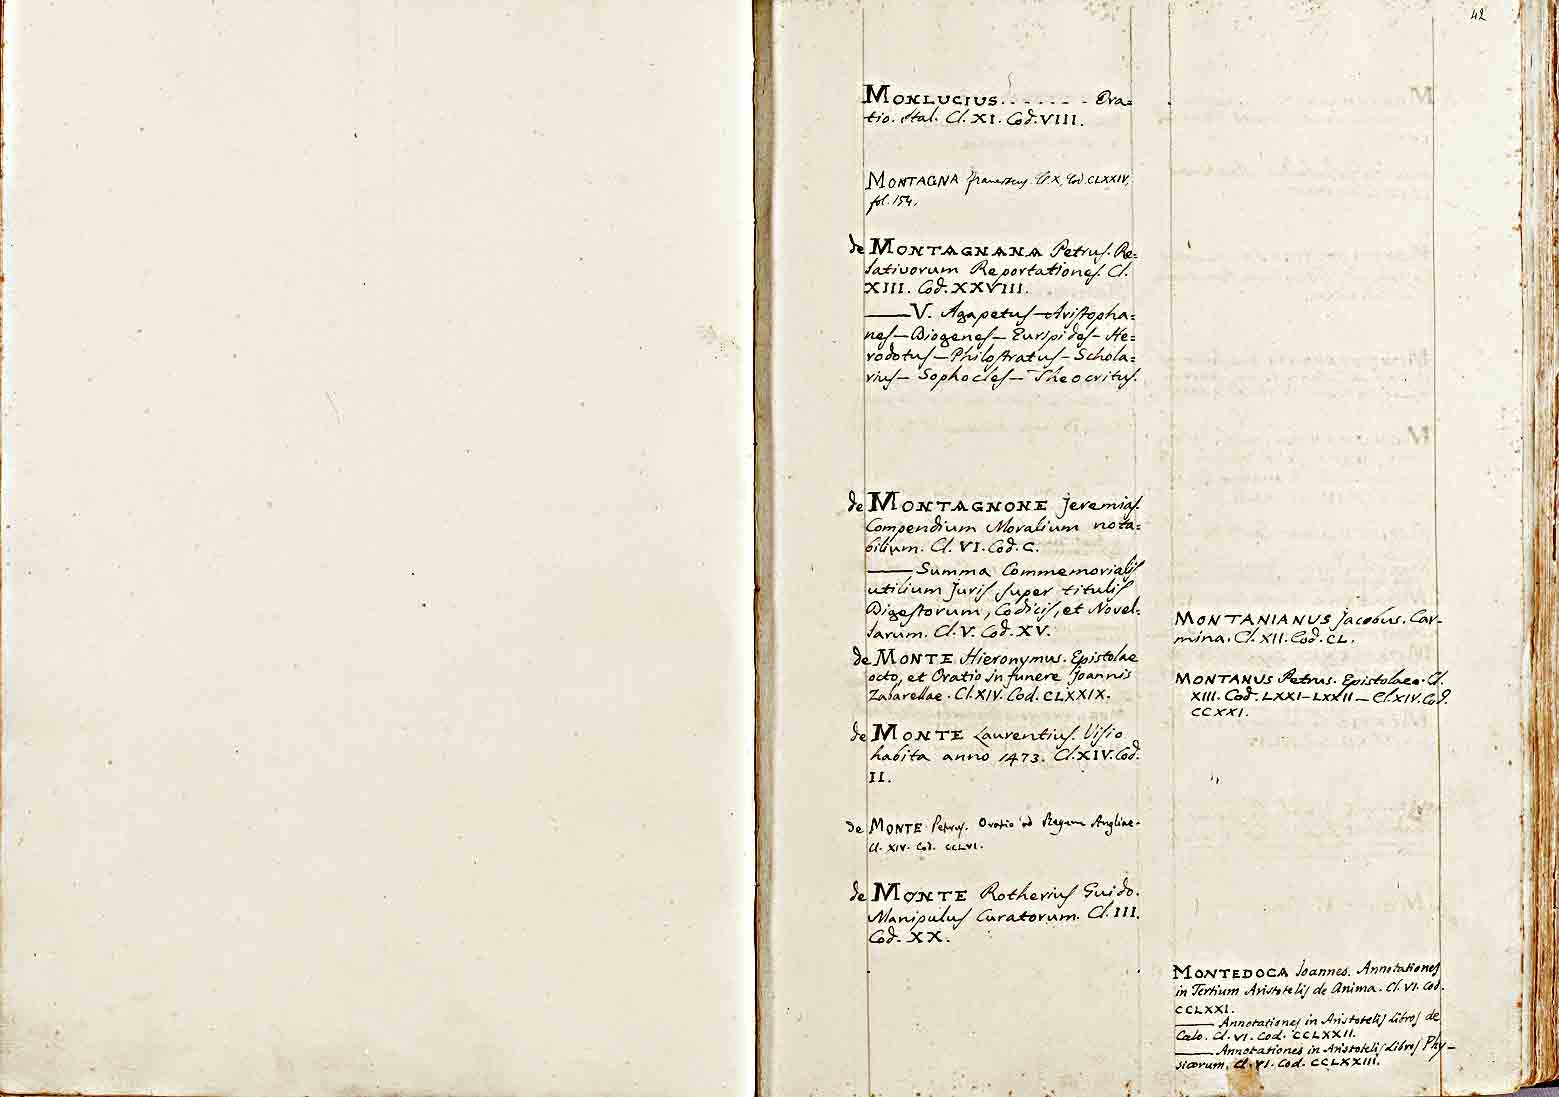 42
MONLUCIUS. . . . . . . Ora=
tio. Ital. Cl. XI. Cod. VIII.
MONTAGNA Franciscus. Cl. X, Cod. CLXXIV,
fol. 154.
de MONTAGNANA Petrus. Re=
lativorum Reportationes. Cl.
XIII. Cod. XXVIII.
—— V. Agapetus — Aristopha=
nes — Diogenes — Euripides — He=
rodotus — Philostratus — Schola=
rius — Sophocles — Theocritus.
de MONTAGNONE Jeremias.
Compendium Moralium nota=
bilium. Cl. VI. Cod. C.
—— Summa Commemorialis
utilium Juris super titulis
Digestorum, Codicis, et Novel=
larum. Cl. V. Cod. XV.
de MONTE Hieronymus. Epistolae
octo, et Oratio in funere Joannis
Zabarellae. Cl. XIV. Cod. CLXXIX.
de MONTE Laurentius. Visio
habita anno 1473. Cl. XIV. Cod.
II.
de MONTE Petrus. Oratio ad Regem Angliae.
Cl. XIV. Cod. CCLVI.
de MONTE Rotherius Guido.
Manipulus Curatorum. Cl. III.
Cod. XX.
MONTANIANUS Jacobus. Car-
mina. Cl. XII. Cod. CL.
MONTANUS Petrus. Epistolae. Cl.
XIII. Cod. LXXI–LXXII — Cl. XIV. Cod.
CCXXI.
MONTEDOCA Joannes. Annotationes
in Tertium Aristotelis de Anima. Cl. VI. Cod.
CCLXXI.
—— Annotationes in Aristotelis Libros de
Cælo. Cl. VI. Cod. CCLXXII.
—— Annotationes in Aristotelis Libros Phy-
sicorum. Cl. VI. Cod. CCLXXIII.